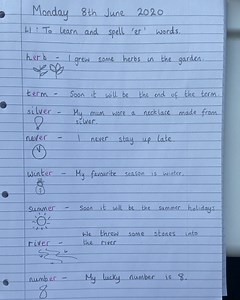 Monday 8th June 2020
LI: To learn and spell 'er' words.
herb - I grew some herbs in the garden.
term - Soon it will be the end of the term.
silver - My mum wore a necklace made from
silver.
never - I never stay up late.
winter - My favourite season is winter.
summer - Soon it will be the summer holidays.
river - We threw some stones into
the river
number - My lucky number is 8.
8